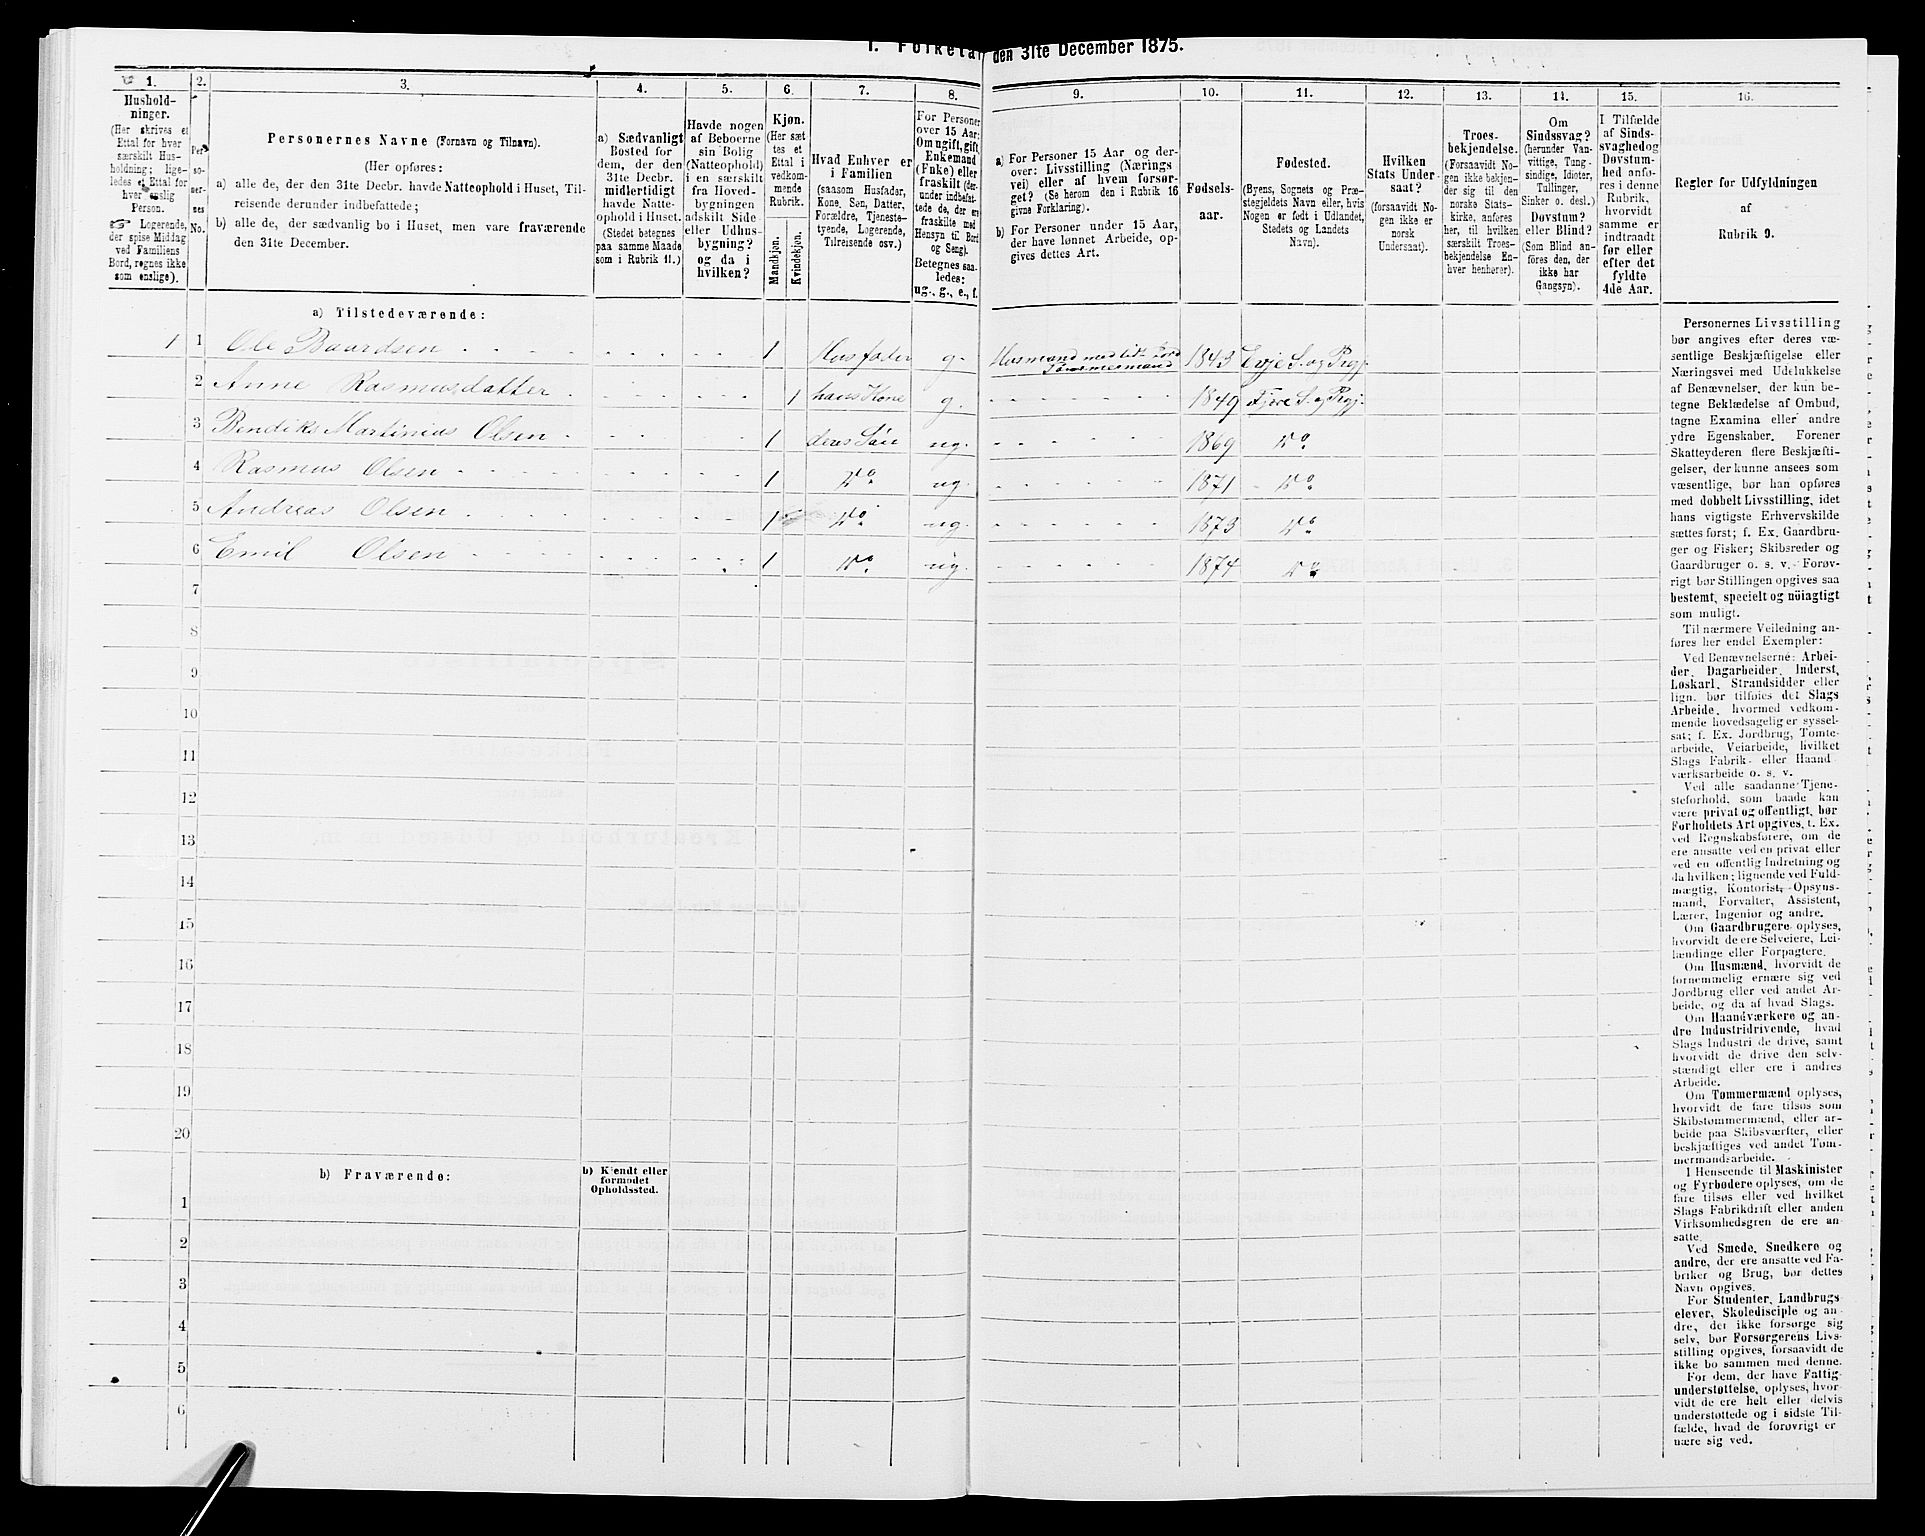 1. Folketæ den 31te December 1875.
1. 2. 3. 4. 5. 6. 7. 8. 9. 10. 11. 12. 13. 14. 15. 16.
Hushold-
ninger.
(Her skrives et
Ettal for hver
særskilt Hus-
holdning; lige-
ledes et Ettal for
hver enslig
Person.
Logerende,
der spise Middag
ved Familiens
Bord, regnes ikke
som enslige).
Per
so-
ner-
nes
No.
Personernes Navne (Fornavn og Tilnavn).
(Her opføres:
a) alle de, der den 31te Decbr. havde Natteophold i Huset, Til-
reisende derunder indbefattede;
b) alle de, der sædvanlig bo i Huset, men vare fraværende
den 31te December.
a) Sædvanligt
Bosted for
dem, der den
31te Decbr.
midlertidigt
havde Natte-
ophold i Huset.
(Stedet betegnes
paa samme Maade,
som i Rubrik 11.)
Havde nogen
af Beboerne
sin Bolig
(Natteophold)
i en særskilt
fra Hoved-
bygningen
adskilt Side-
eller Udhus-
bygning?
og da i
hvilken?
Kjøn.
(Her sæt
tes et
Ettal i
vedkom-
mende
Rubrik.
Mandkjøn.
Kvindekjøn.
Hvad Enhver er
i Familien
(saasom Husfader,
Kone, Søn, Datter,
Forældre, Tjeneste-
tyende, Logerende,
Tilreisende osv.)
For Personer
over 15 Aar:
Om ugift, gift,
Enkemand
(Enke) eller
fraskilt (der-
under indbefat-
tede de, der ere
fraskilte med
Hensyn til Bord
og Seng).
Betegnes saa-
ledes:
ug., g., e., f.
a) For Personer 15 Aar og der-
over: Livsstilling (Nærings-
vei) eller af hvem forsør-
get? (Se herom den i Rubrik 16
givne Forklaring).
b) For Personer under 15 Aar,
der have lønnet Arbeide, op-
gives dettes Art.
Fødsels-
aar.
Fødested.
(Byens, Sognets og Præ-
stegjeldets Navn eller, hvis
Nogen er født i Udlandet,
Stedets og Landets
Navn).
Hvilken
Stats Under-
saat?
(forsaavidt No-
gen ikke er
norsk
Undersaat).
Troes-
bekjendelse.
(Forsaavidt No-
gen ikke bekjen-
der sig til den
norske Stats-
kirke, anføres
her, til hvilken
særskilt Troes-
bekjendelse En-
hver henhører).
Om
Sindssvag?
(herunder Van-
vittige, Tung-
sindige, Idioter,
Tullinger,
Sinker o. desl.)
Døvstum?
eller Blind?
(Som Blind an-
føres den, der
ikke har
Gangsyn).
I Tilfælde
af Sinds-
svaghed og
Døvstum-
hed anfø-
res i denne
Rubrik,
hvorvidt
samme er
indtraadt
før eller
efter det
fyldte
4de Aar.
Regler for Udfyldningen
af
Rubrik 9.
a) Tilstedeværende:
1 1 Ole Baardsen 1 Husfader g. Husmand med lidt Jord
Tømmermand 1843 Evje S. og Prgj.
2 Anne Rasmusdatter 1 hans Kone g. 1849 Fjære S. og Prgj.
3 Bendiks Martinius Olsen 1 deres Søn ug. 1869 Do
4 Rasmus Olsen 1 Do ug. 1871 Do
5 Andreas Olsen 1 Do ug. 1873 Do
6 Emil Olsen 1 Do ug. 1874 Do
7
8
9
10
11
12
13
14
15
16
17
18
19
20
b) Fraværende:
b) Kjendt eller
formodet
Opholdssted.
1
2
3
4
5
6
Personernes Livsstilling
bør angives efter deres væ-
sentlige Beskjæftigelse eller
Næringsvei med Udelukkelse
af Benævnelser, der kun be-
tegne Beklædelse af Ombud,
tagne Examina eller andre
ydre Egenskaber. Forener
Skatteyderen flere Beskjæfti-
gelser, der kunne ansees som
væsentlige, bør han opføres
med dobbelt Livsstilling, idet
hans vigtigste Erhvervskilde
sættes først; f. Ex. Gaardbru-
ger og Fisker; Skibsreder og
Gaardbruger o. s. v. Forøv-
rigt bør Stillingen opgives saa
bestemt, specielt og nöiagtigt
som muligt.
Til nærmere Veiledning an-
føres her endel Exempler:
Ved Benævnelserne: Arbei-
der, Dagarbeider, Inderst,
Løskarl, Strandsidder eller
lign. bør tilføies det Slags
Arbeide, hvormed vedkom-
mende hovedsagelig er syssel-
sat; f. Ex. Jordbrug, Tomte-
arbeide, Veiarbeide, hvilket
Slags Fabrik- eller Haand-
værksarbeide o. s. v.
Ved alle saadanne Tjene-
steforhold, som baade kan
være privat og offentligt, bør
Forholdets Art opgives, t. Ex.
ved Regnskabsførere, om de
ere ansatte ved en privat eller
ved en offentlig Indretning og
da hvilken; lignende ved Fuld-
mægtig, Kontorist, Opsyns-
mand, Forvalter, Assistent,
Lærer, Ingeniør og andre.
Om Gaardbrugere oplyses,
hvorvidt de ere Selveiere, Lei-
lændinge eller Forpagtere.
Om Husmænd, hvorvidt de
fornemmelig ernære sig ved
Jordbrug eller ved andet Ar-
beide, og da af hvad Slags.
Om Haandværkere og an-
dre Industridrivende, hvad
Slags Industri de drive, samt
hvorvidt de drive den selv-
stændigt eller ere i andres
Arbeide.
Om Tømmermænd oplyses,
hvorvidt de fare tilsøs som
Skibstømmermænd, eller ar-
beide paa Skibsværfter, eller
beskjæftiges ved andet Tøm-
mermandsarbeide.
I Henseende til Maskinister
og Fyrbødere oplyses, om de
fare tilsøs eller ved hvilket
Slags Fabrikdrift eller anden
Virksomhedsgren de ere an-
satte.
Ved Smede, Snedkere og
andre, der ere ansatte ved Fa-
briker og Brug, bør dettes
Navn opgives.
For Studenter, Landbrugs-
elever, Skoledisciple og an-
dre, der ikke forsørge sig
selv, bør Forsørgerens Livs-
stilling opgives, forsaavidt de
ikke bo sammen med denne.
For dem, der have Fattig-
understøttelse, oplyses, hvor-
vidt de ere helt eller delvis
understøttede og i sidste Til-
fælde, hvad de forøvrigt er-
nære sig ved.